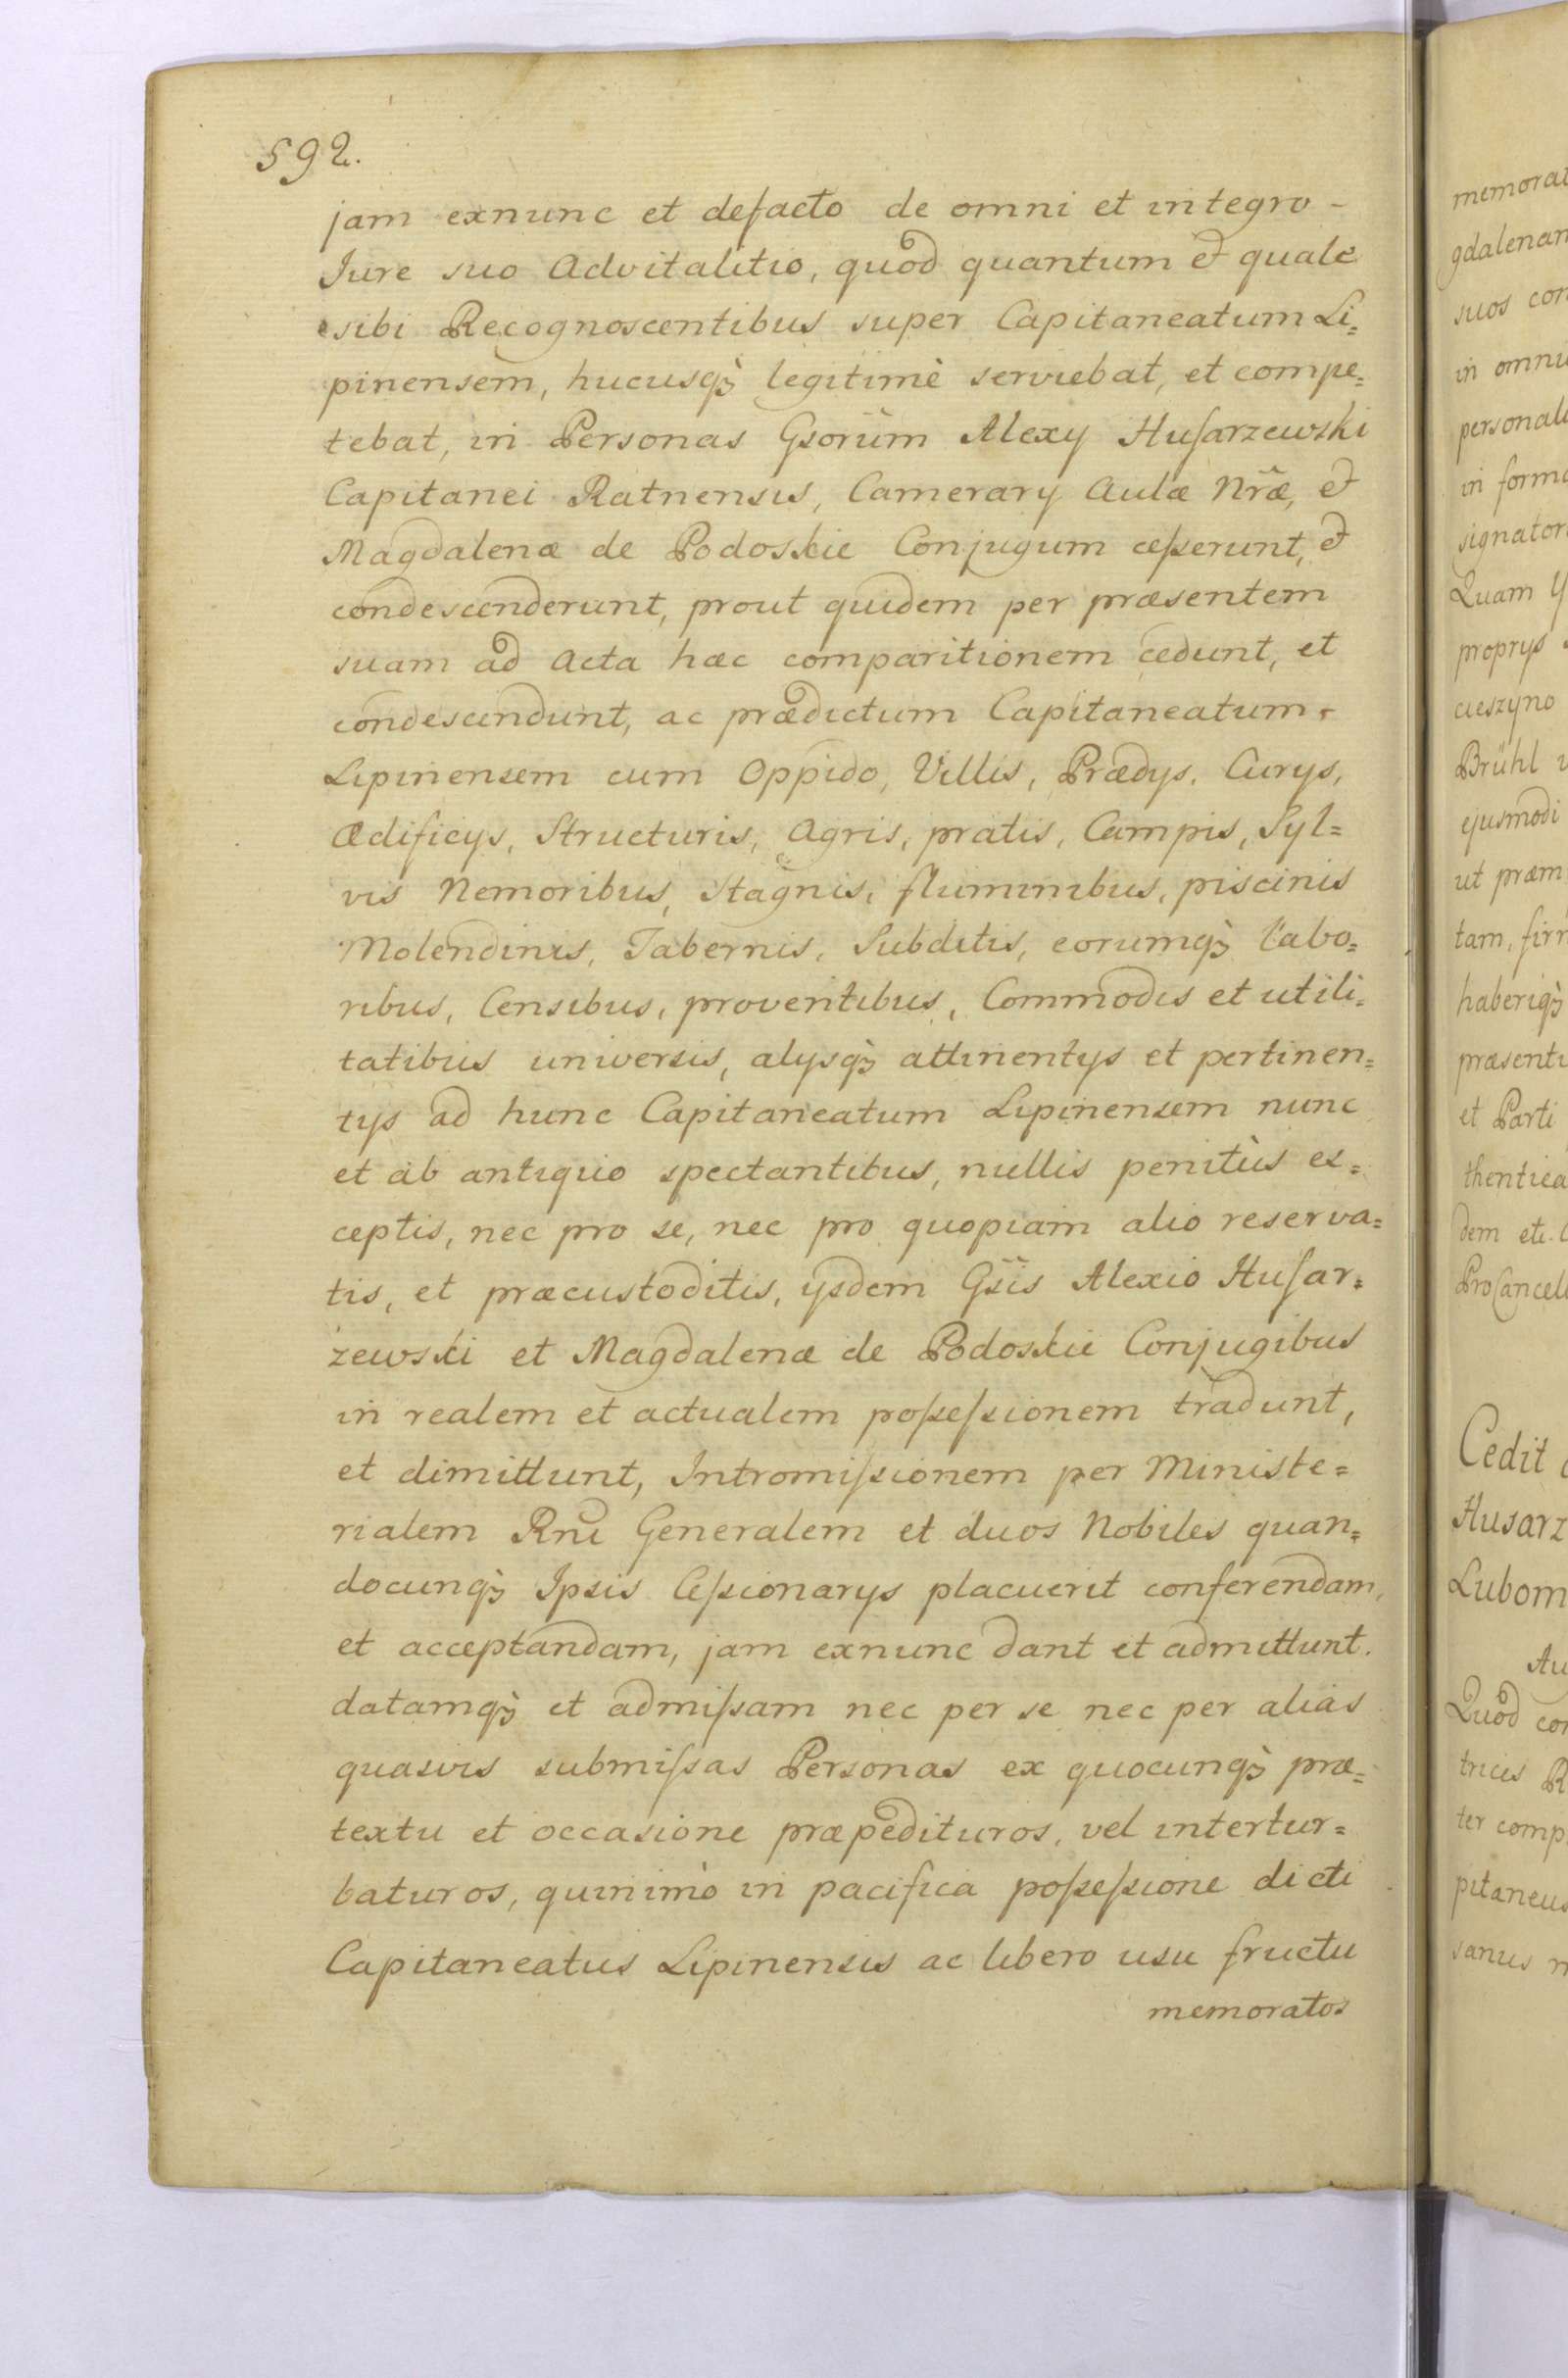 592.
jam exnunc et defacto de omni et integro -
Jure suo Advitalitio, quod quantum et quale
sibi Recognoscentibus super Capitaneatum Li=
pinensem, hucusq; legitimè serviebat, et compe=
tebat, in Personas Gsorum Alexy Husarzewski
Capitanei Ratnensis, Camerary Aulæ Nræ, et
Magdalenæ de Podoskie Conjugum cesserunt, et
condescenderunt, prout quidem per præsentem
suam ad Acta hæc comparitionem cedunt, et
condescendunt, ac prædictum Capitaneatum
Lipinensem cum Oppido, Villis, Prædys, Curys,
Ædificys, Structuris, Agris, pratis, Campis, Syl=
vis Nemoribus, Stagnis, fluminibus, piscinis
Molendinis, Tabernis, Subditis, eorumq; labo=
ribus, Censibus, proventibus, Commodis et utili=
tatibus universis, alysq; attinentys et pertinen=
tys ad hunc Capitaneatum Lipinensem nunc
et ab antiquo spectantibus, nullis penitùs ex=
ceptis, nec pro se, nec pro quopiam alio reserva=
tis, et præcustoditis, ysdem Gsis Alexio Husar=
zewski et Magdalenæ de Podoskie Conjugibus
in realem et actualem possessionem tradunt,
et dimittunt, Intromissionem per Ministe=
rialem Rni Generalem et duos Nobiles quan=
docunq; Ipsis Cessionarys placuerit conferendam,
et acceptandam, jam exnunc dant et admittunt.
datamq; et admissam nec per se nec per alias
quasvis submissas Personas ex quocunq; præ=
textu et occasione præpedituros, vel intertur=
baturos, quinimò in pacifica possessione dicti
Capitaneatus Lipinensis ac libero usu fructu
memoratos
gdalenam
suos
in
in
Quam
proprys
cieszyno
Brühl
ejusmodi
ut
tam,
haberiq;
et Parti
dem
Cedit
Quod